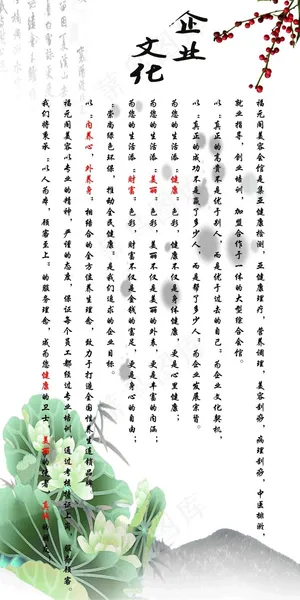 企业
文化
福元阁美容会馆是集亚健康检测,亚健康理疗,营养调理,美容刮痧,病理刮痧,中医推浙,
就业指导,创业培训,加盟合作于一体的大型综合会馆。
以“真正的高贵不是优于别人,而是优于过去的自己”为企业文化契机,
以“真正的成功不是赢了多少人,而是帮了多少人”为企业发展宗旨。
为您的生活添“健康”色彩,健康不仅是身体健康,更是心里健康;
为您的生活添“美丽”色彩,美丽不仅是美丽的外表,更是丰富的内涵;
为您的生活添“财富”色彩,财富不仅是金钱的富足,更是身心的自由;
“崇尚绿色环保,推动全民健康”是我们追求的企业目标
以“内养心,外养身”相结合的全方位养生理念,致力于打造全国性养生连锁品牌
福元阁美容以专业的精神,严谨的态度,保证每个员工都经过专业培训,通过考核持证上岗,服务顾客。
我们将秉承“以人为本,顾客至上”的服务理念,成为您健康的卫士,美丽的使者,